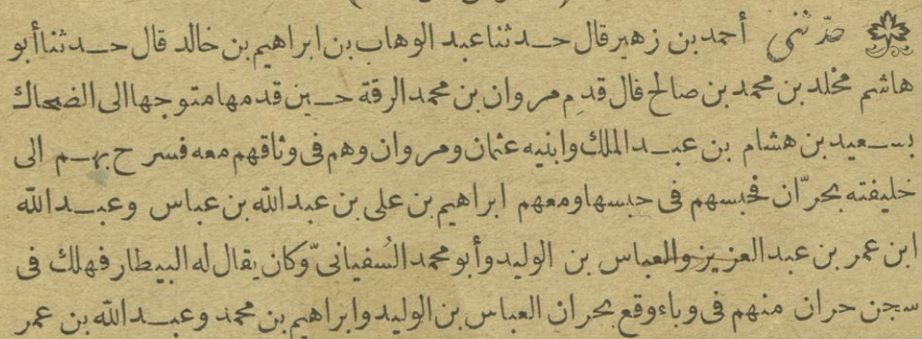 حدّثنى أحمد بن زهير قال حدثنا عبد الوهاب بن ابراهيم بن خالد قال حدثنا أبو
هاشم مخلد بن محمد بن صالح قال قدم مروان بن محمد الرقة حين قدمها متوجها الى الضحاك
بسعيد بن هشام بن عبد الملك وابنيه عثمان ومروان وهم فى وثاقهم معه فسرح بهم الى
خليفته بحرّان فحبسهم فى حبسها ومعهم ابراهيم بن على بن عبد الله بن عباس وعبد الله
ابن عمر بن عبد العزيز والعباس بن الوليد وأبو محمد السُفيانىّ وكان يقال له البيطار فهلك فى
سجن حران منهم فى وباء وقع بحران العباس بن الوليد وابراهيم بن محمد وعبد الله بن عمر